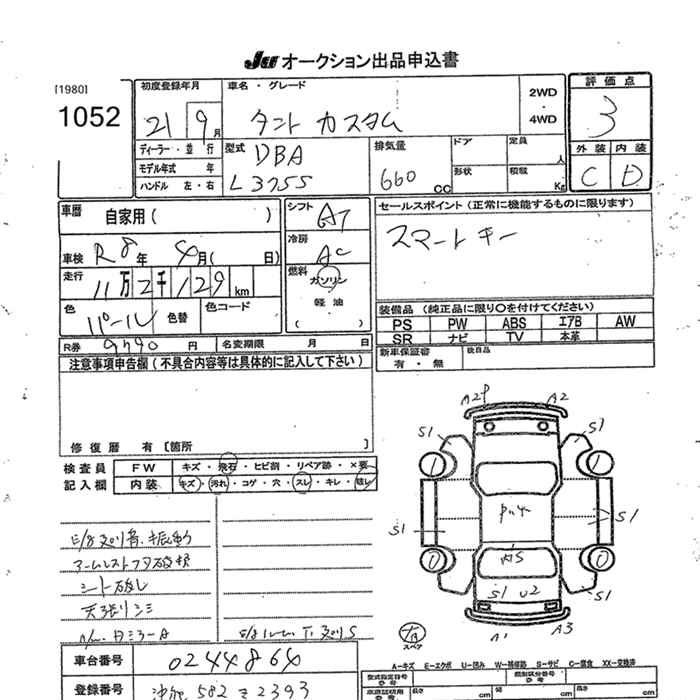 JU オークション出品申込書
[1980]
1052
初度登録年月
21 9月
車名・グレード
タント カスタム
2WD
・
4WD
評価点
3
外装 内装
C D
ディーラー・並行
モデル年式 年
ハンドル 左・右
型式
DBA
L375S
排気量
660 CC
ドア
形状
定員 人
積載 Kg
車歴 自家用( )
車検 R8年 4月( 日)
走行 11万2千129 km
色 パール 色替 色コード
シフト AT
冷房 AC
燃料
ガソリン
・
軽油
( )
セールスポイント(正常に機能するものに限ります)
スマートキー
装備品(純正品に限り〇を付けてください)
PS PW ABS エアB AW
SR ナビ TV 本革
新車保証書 後日品
有・無
R券 9790円 名変期限 月 日
注意事項申告欄(不具合内容等は具体的に記入して下さい)
修復歴 有〔箇所 〕
検査員
記入欄
FW キズ・飛石・ヒビ割・リペア跡・×要
内装 キズ・汚れ・コゲ・穴・スレ・キレ・破レ
アームレストフタ破損
シート破レ
天張りシミ
A2P A2
S1 S1
S1 S1
S1 U2
S1 S1
A1 A3
スペア
車台番号 0244864
登録番号 沖縄 582 ミ 2393
A-キズ E-エクボ U-凹み W-補修跡 S-サビ C-腐食 XX-交換済
型式指定番号 類別区分番号
長さ cm 幅 cm 高さ cm